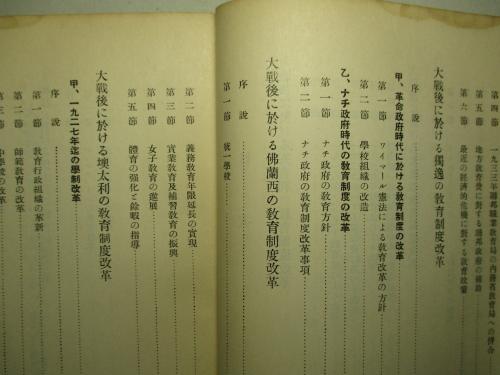 第四節 一九三三年聯邦業敎育局の內務省敎育局への倂合
第五節 地方敎育費に對する聯邦政府の補助
第六節 最近の經濟的危機に對する敎育政策
大戰後に於ける獨逸の敎育制度改革
序說
甲、革命政府時代に於ける敎育制度の改革
第一節 ワイマール憲法による敎育改革の方針
第二節 學校組織の改造
乙、ナチ政府時代の敎育制度の改革
第一節 ナチ政府の敎育方針
第二節 ナチ政府の敎育制度改革事項
大戰後に於ける佛蘭西の敎育制度改革
序說
第一節 統一學校
第二節 義務敎育年限延長の實現
第三節 實業敎育及補習敎育の振興
第四節 女子敎育の進展
第五節 體育の强化と餘暇の指導
大戰後に於ける墺太利の敎育制度改革
甲、一九二七年迄の學制改革
序說
第一節 敎育行政組織の革新
第二節 師範敎育の改革
第三節 中學校の改革